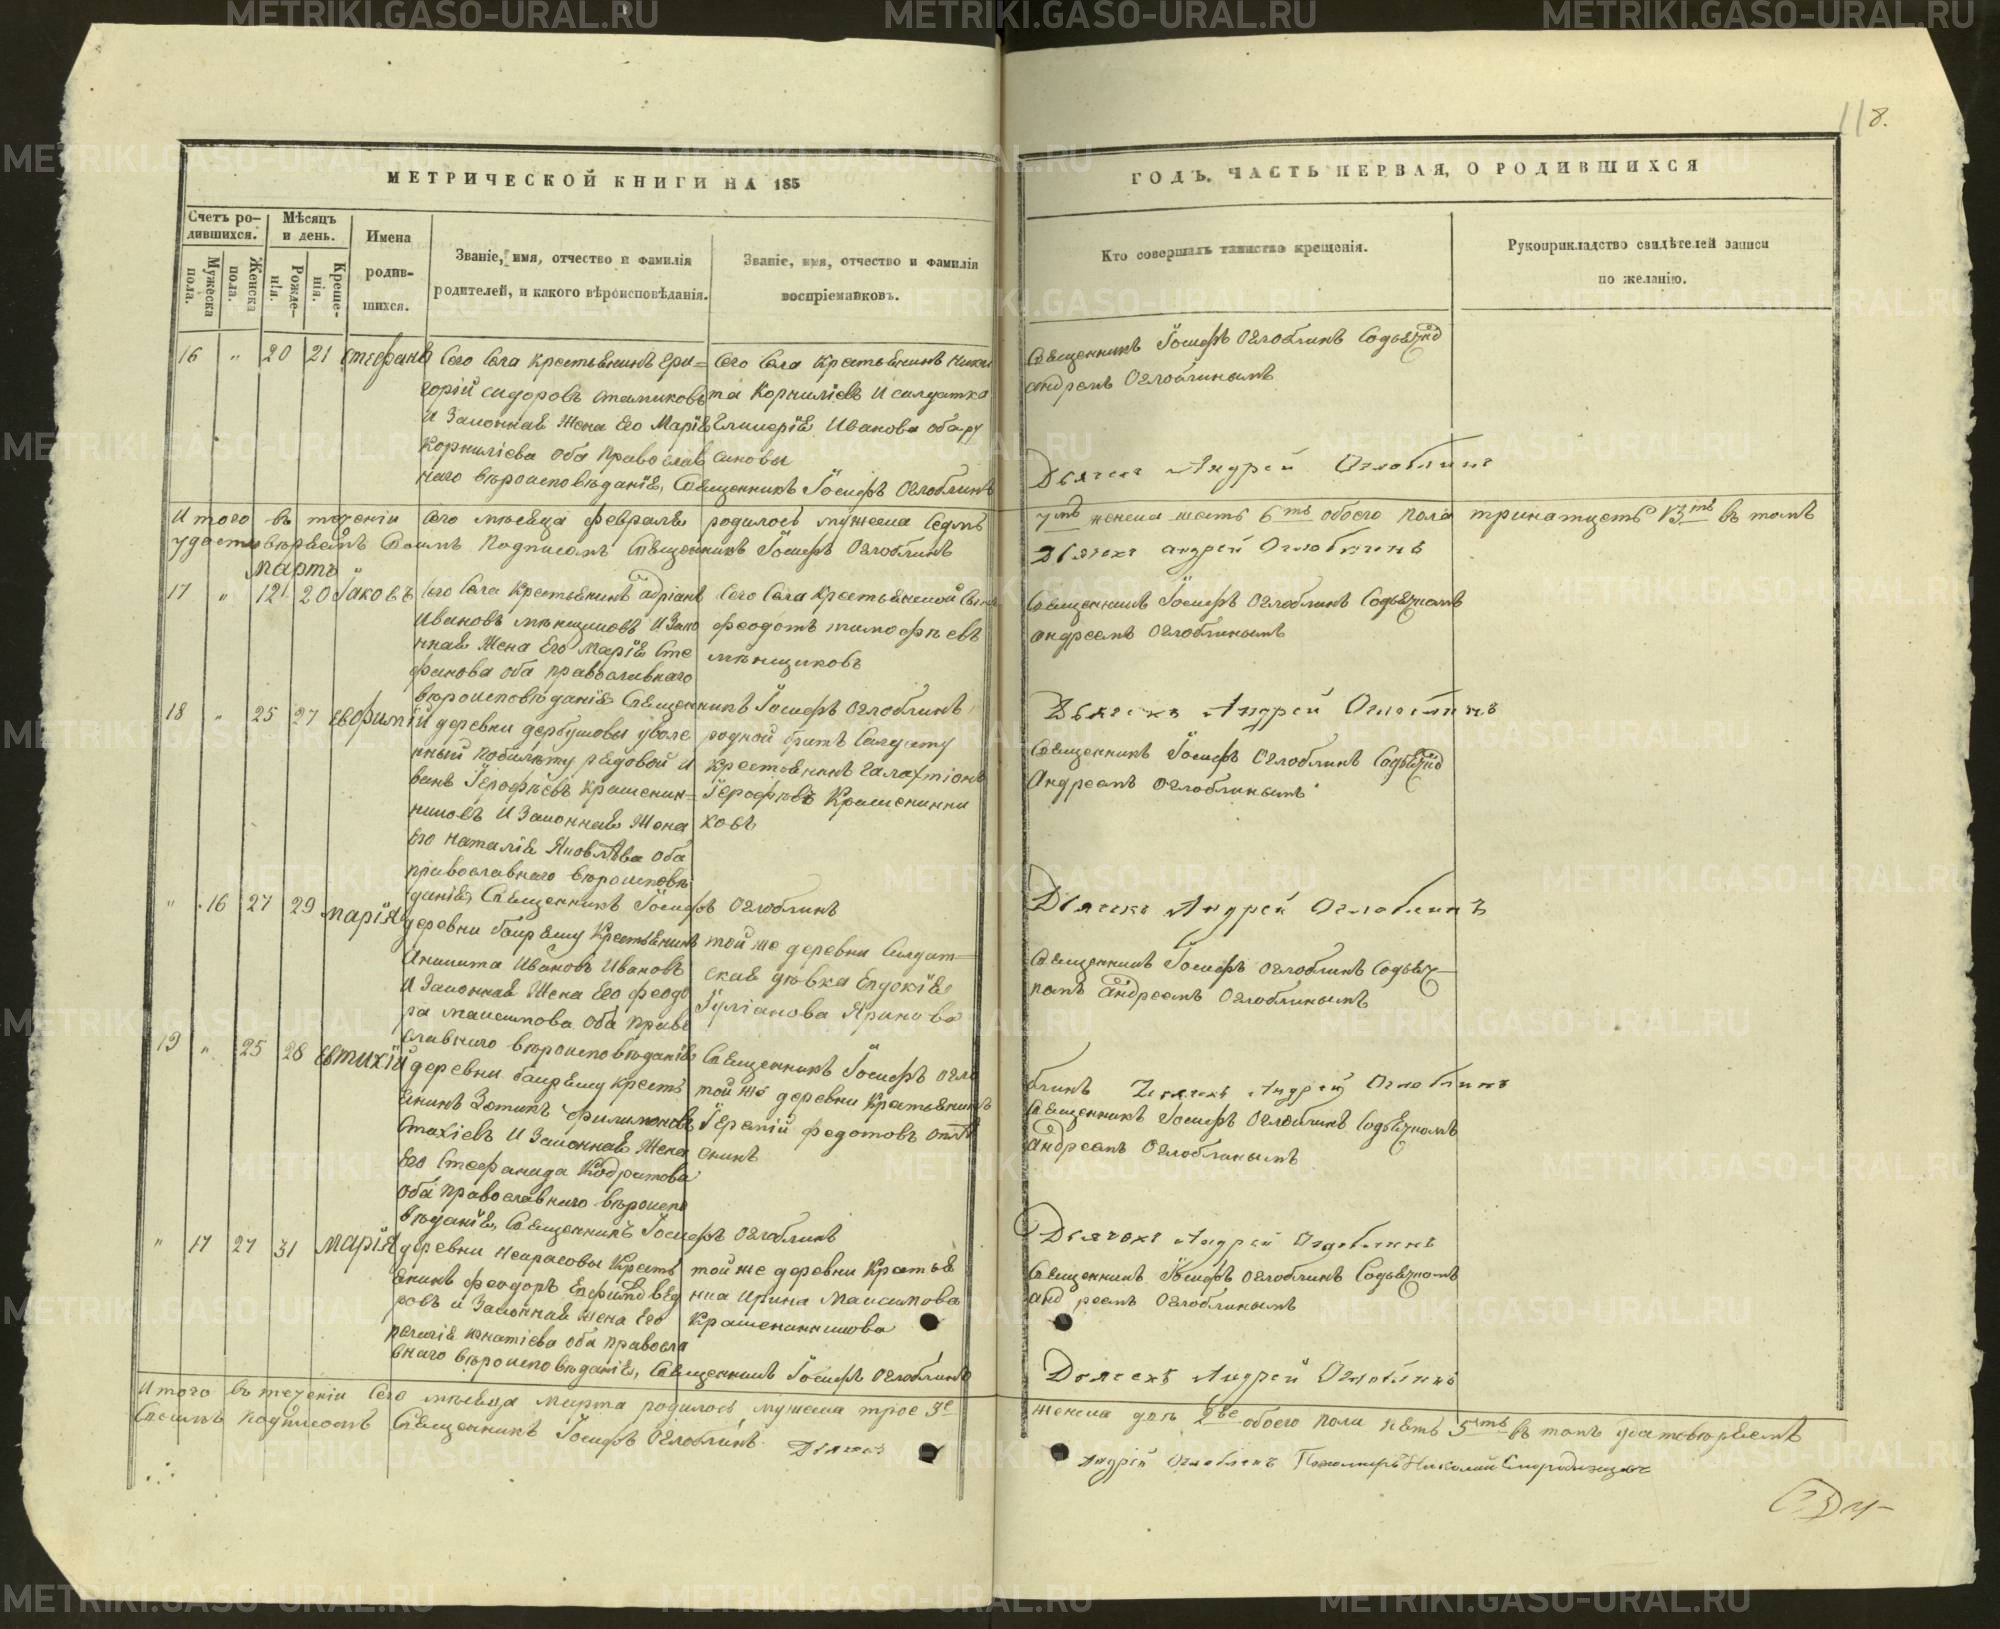 118.
МЕТРИЧЕСКОЙ КНИГИ НА 185
ГОДЪ. ЧАСТЬ ПЕРВАЯ, О РОДИВШИХСЯ
Счетъ ро-
дившихся.
Мужеска
пола.
Женска
пола.
Мѣсяцъ
и день.
Рожде-
нія.
Креще-
нія.
Имена
родив-
шихся.
Званіе, имя, отчество и фамилія
родителей, и какого вѣроисповѣданія.
Званіе, имя, отчество и фамилія
воспріемниковъ.
Кто совершалъ таинство крещенія.
Рукоприкладство свидѣтелей записи
по желанію.
16 " 20 21 Стефанъ
Сего Села Крестьянинъ Гри=
горій Сидоровъ
и Законная Жена Его Марія
Корниліева оба Православ
наго вѣроисповѣданія, Священникъ Іосифъ Оглоблинъ
Сего Села Крестьянинъ Ники
та Корниліевъ и солдатка
Иванова
Священникъ Іосифъ Оглоблинъ Содьячкомъ
андреемъ Оглоблинымъ
Дьячекъ Андрей Оглоблинъ
Итого въ теченіи Сего мѣсяца февраля родилось мужеска Седмъ
7мь женска шесть 6ть обоего пола тринатцеть 13ть въ томъ
Подписомъ Священникъ Іосифъ Оглоблинъ
Дьячекъ андрей Оглоблинъ
Мартъ
17 " 12 20 Іаковъ
Сего Села Крестьянинъ адріанъ
Ивановъ мѣнщиковъ И Зако
нная Жена Его Марія Сте
фанова оба православнаго
вѣроисповѣданія Священникъ Іосифъ Оглоблинъ
Сего Села Крестьянской Сынъ
феодотъ тимофѣевъ
мѣнщиковъ
Священникъ Іосифъ Оглоблинъ Содьячкомъ
андреемъ Оглоблинымъ
Дьячекъ Андрей Оглоблинъ
18 " 25 27 Евфимій
деревни дербушовы уволе
нный побилѣту рядовой И
ванъ Іерофѣевъ Крашенин=
никовъ И Законная Жена
Его Наталія Яковлѣва оба
православнаго вѣроисповѣ
данія, Священникъ Іосифъ Оглоблинъ
родной братъ Солдату
Крестьянинъ Галахтіонъ
Іерофѣевъ Крашенинни
ковъ
Священникъ Іосифъ Оглоблинъ Содьячкомъ
Андреемъ Оглоблинымъ
Дьячекъ Андрей Оглоблинъ
" 16 27 29 Марія
деревни Крестьянинъ
Аникита Ивановъ Ивановъ
И Законная Жена Его феодо
ра Максимова Оба Право
славнаго вѣроисповѣданія Священникъ Іосифъ Огло
блинъ Дьячекъ Андрей Оглоблинъ
той же деревни Солдат=
ская дѣвка Евдокія
Іуліанова
Священникъ Іосифъ Оглоблинъ Содьяч=
комъ андреемъ Оглоблинымъ
19 " 25 28 Евтихій
деревни Кресть
янинъ Зотикъ филимоновъ
Стахіевъ И Законная Жена
Его Стефанида Кодратова
оба православнаго вѣроиспо
вѣданія, Священникъ Іосифъ Оглоблинъ
той же деревни Крестьянинъ
федотовъ
Священникъ Іосифъ Оглоблинъ Содьячкомъ
андреемъ Оглоблинымъ
Дьячекъ Андрей Оглоблинъ
" 17 27 31 Марія
деревни Некрасовы Кресть
янинъ феодоръ
и Законная Жена Его
Игнатіева оба правосла
внаго вѣроисповѣданія, Священникъ Іосифъ Оглоблинъ
той же деревни Крестья
нка Ирина Максимова
Крашенинникова
Священникъ Іосифъ Оглоблинъ Содьячкомъ
андреемъ Оглоблинымъ
Дьячекъ Андрей Оглоблинъ
Итого въ теченіи Сего мѣсяца Марта родилось мужеска трое 3е
женска двѣ 2ве обоего пола пять 5ть въ томъ удостовѣряемъ
Своимъ подписомъ Священникъ Іосифъ Оглоблинъ. Дьячекъ
Андрей Оглоблинъ Пономарь Николай
METRIKI.GASO-URAL.RU